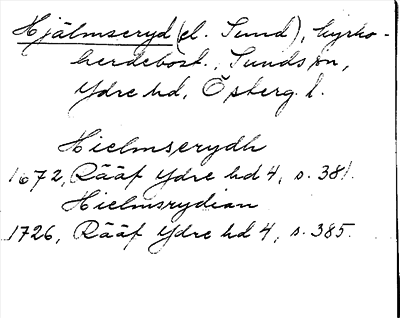 Hjälmseryd (el. Sund), kyrko-
herdebost., Sunds sn,
Ydre hd, Östberg. l.
Hielmserydh
1672, Rääf Ydre hd 4, s. 381.
Hielmsrydian
1726, Rääf Ydre hd 4, s. 385.